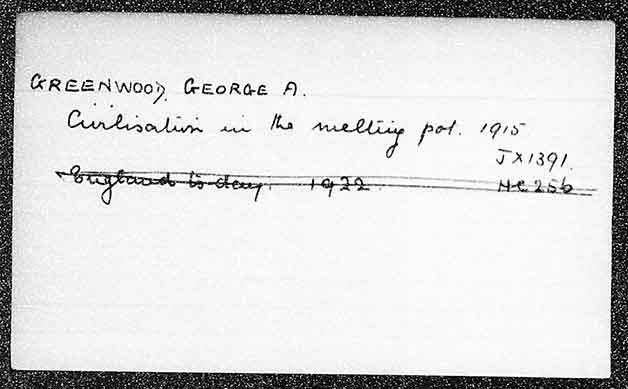 GREENWOOD, GEORGE A.
Civilisation in the melting pot. 1915
JX1391.
England to-day. 1922 HC256